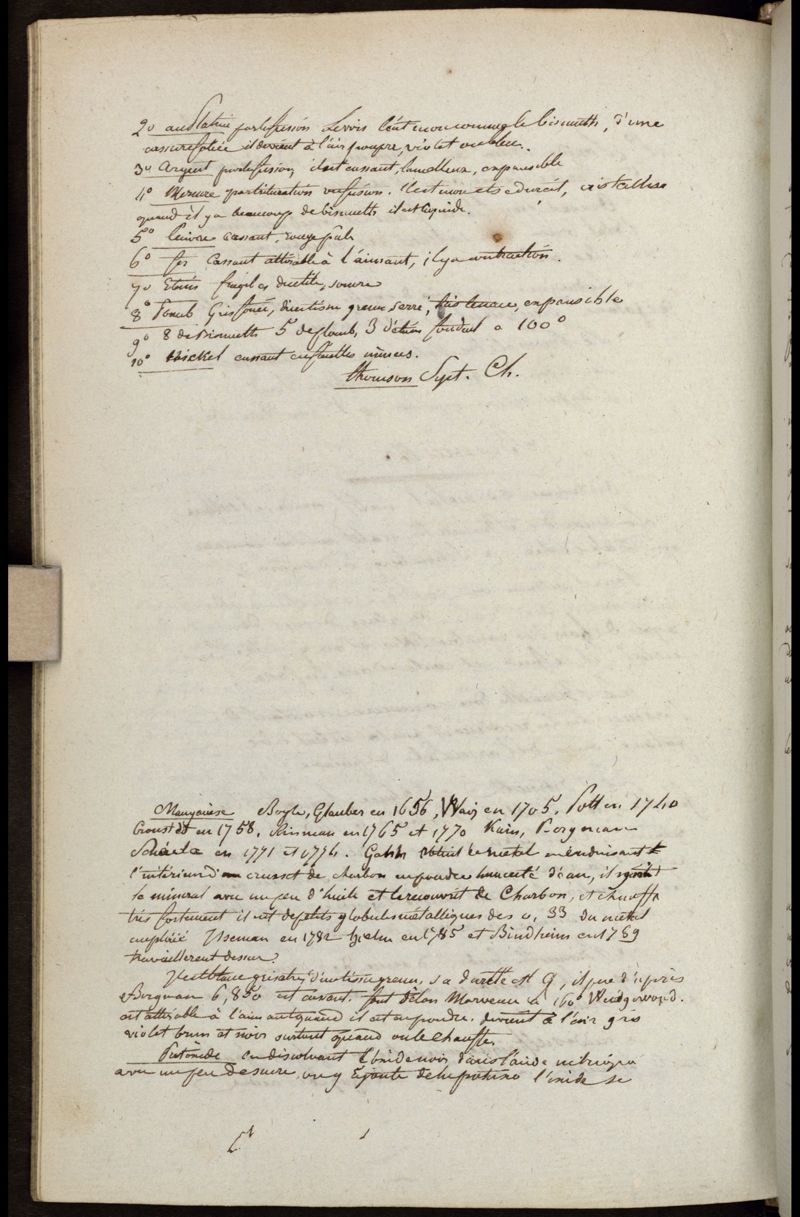 2º au Platine par la fusion Lewis l'éut moucomme le bismuth, d'une
cassure foliée il devient à l'air pourpre, violet ou bleu.
3º Argent par la fusion, il est cassant, lamelleux, expansible
4º Mercure par trituration ou fusion. il est mou et se durcit, cristallise
quand il y a beaucoup de bismuth il est liquide.
5º Cuivre cassant, rouge pale
6º fer Cassant attirable à l'aimant, il y a contraction.
7º Etain fragil et ductile, sonore
8º Plomb Gris foncé, d'un tissu grenu serré, très tenace, expansible
9º 8 de Bismuth 5 de plomb, 3 d'étain fondent a 100º
10º nickel cassant en feuilles minces.
thomson Syst. Ch.
Manganèse Boyle, Glauber en 1656, Waiz en 1705, Pott en 1740
Cronstedt en 1758, Rinman en 1765 et 1770 Kaim, Bergman
Schéele en 1771 et 1774. Gahn obtint le métal en enduisant
l'intérieur d'un creuset de charbon en poudre humecté d'eau, il y mit
le minéral avec un peu d'huile et le recouvrit de Charbon, et chauffa
très fortement il eut de petits globules métalliques des 0, 33 du métal
employé Ilseman en 1782 hielm en 1785 et Bindheim en 1789
travaillerent dessus.
Il est blanc grisatre, d'un tissu grenu, sa dureté est 9, il pese d'après
Bergman 6,850 est cassant. fut selon Morveau à 160º Wedgwood.
est attirable à l'aimant quand il est en poudre. devient à l'air gris
violet brun et noir surtout quand on le chauffe.
Protoxide en dissolvant l'oxide noir dans l'acide nitrique
avec un peu de sucre, on y ajoute de la potasse l'oxide se